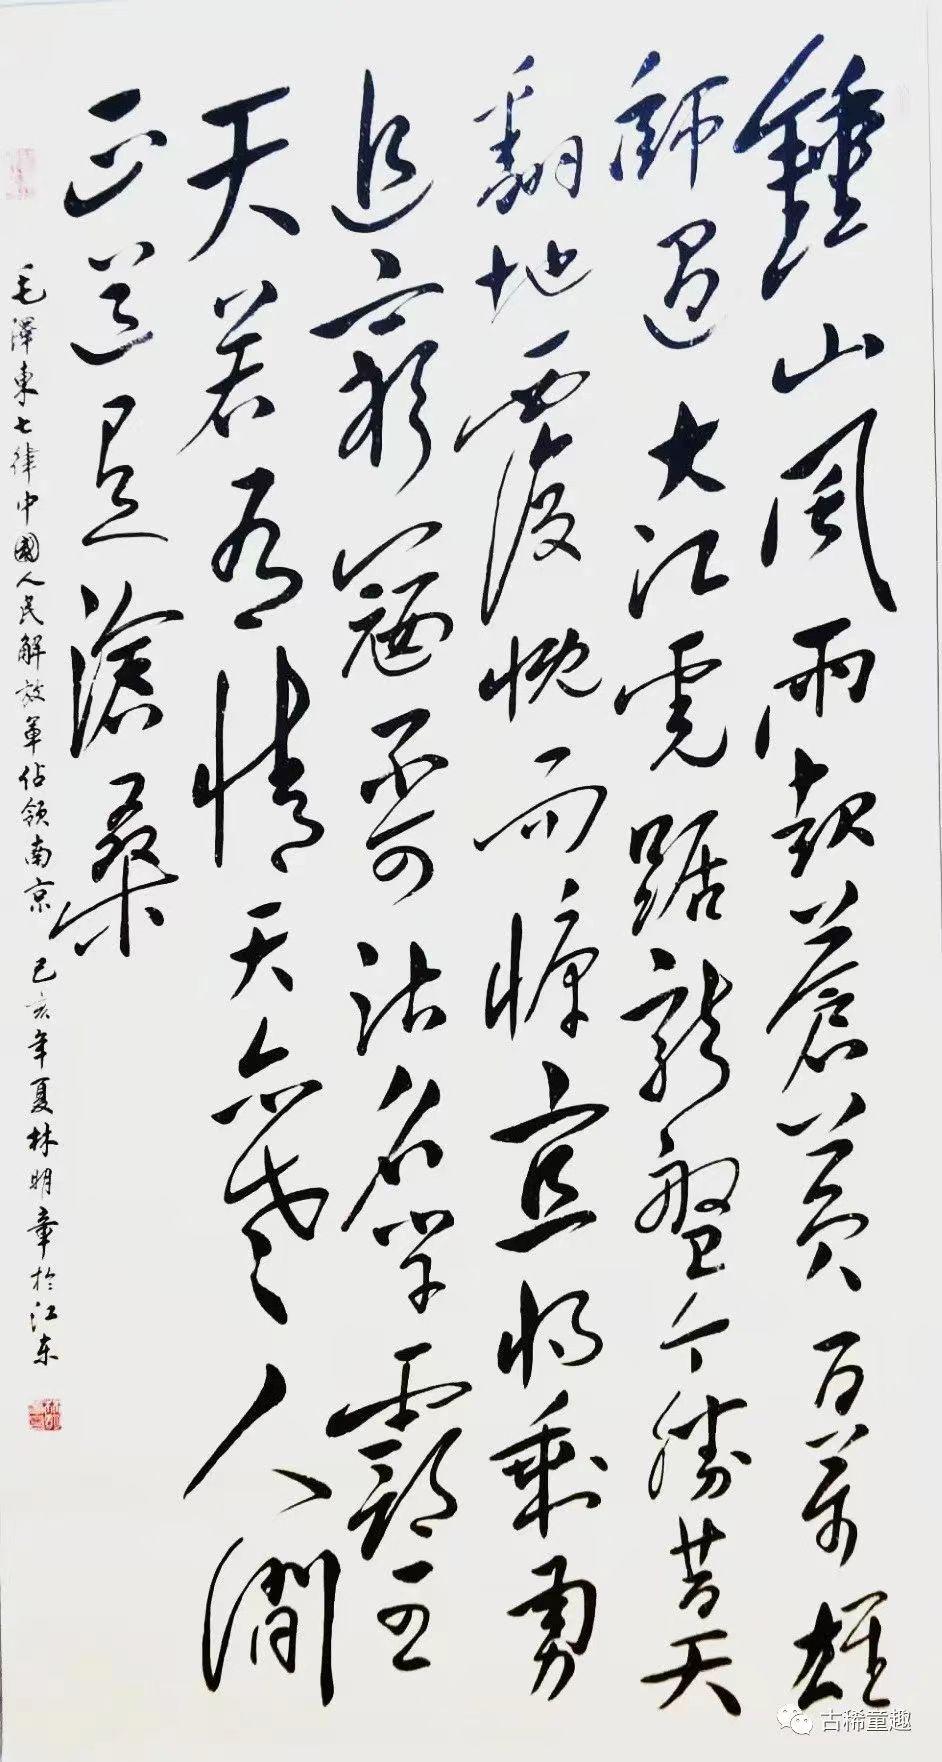 鍾山風雨起蒼黃百萬雄
師過大江虎踞龍盤今勝昔天
翻地覆慨而慷宜將剩勇
追窮寇不可沽名學霸王
天若有情天亦老人間
正道是滄桑
毛澤東七律中國人民解放軍佔領南京 己亥年夏林明章於江東
古稀童趣